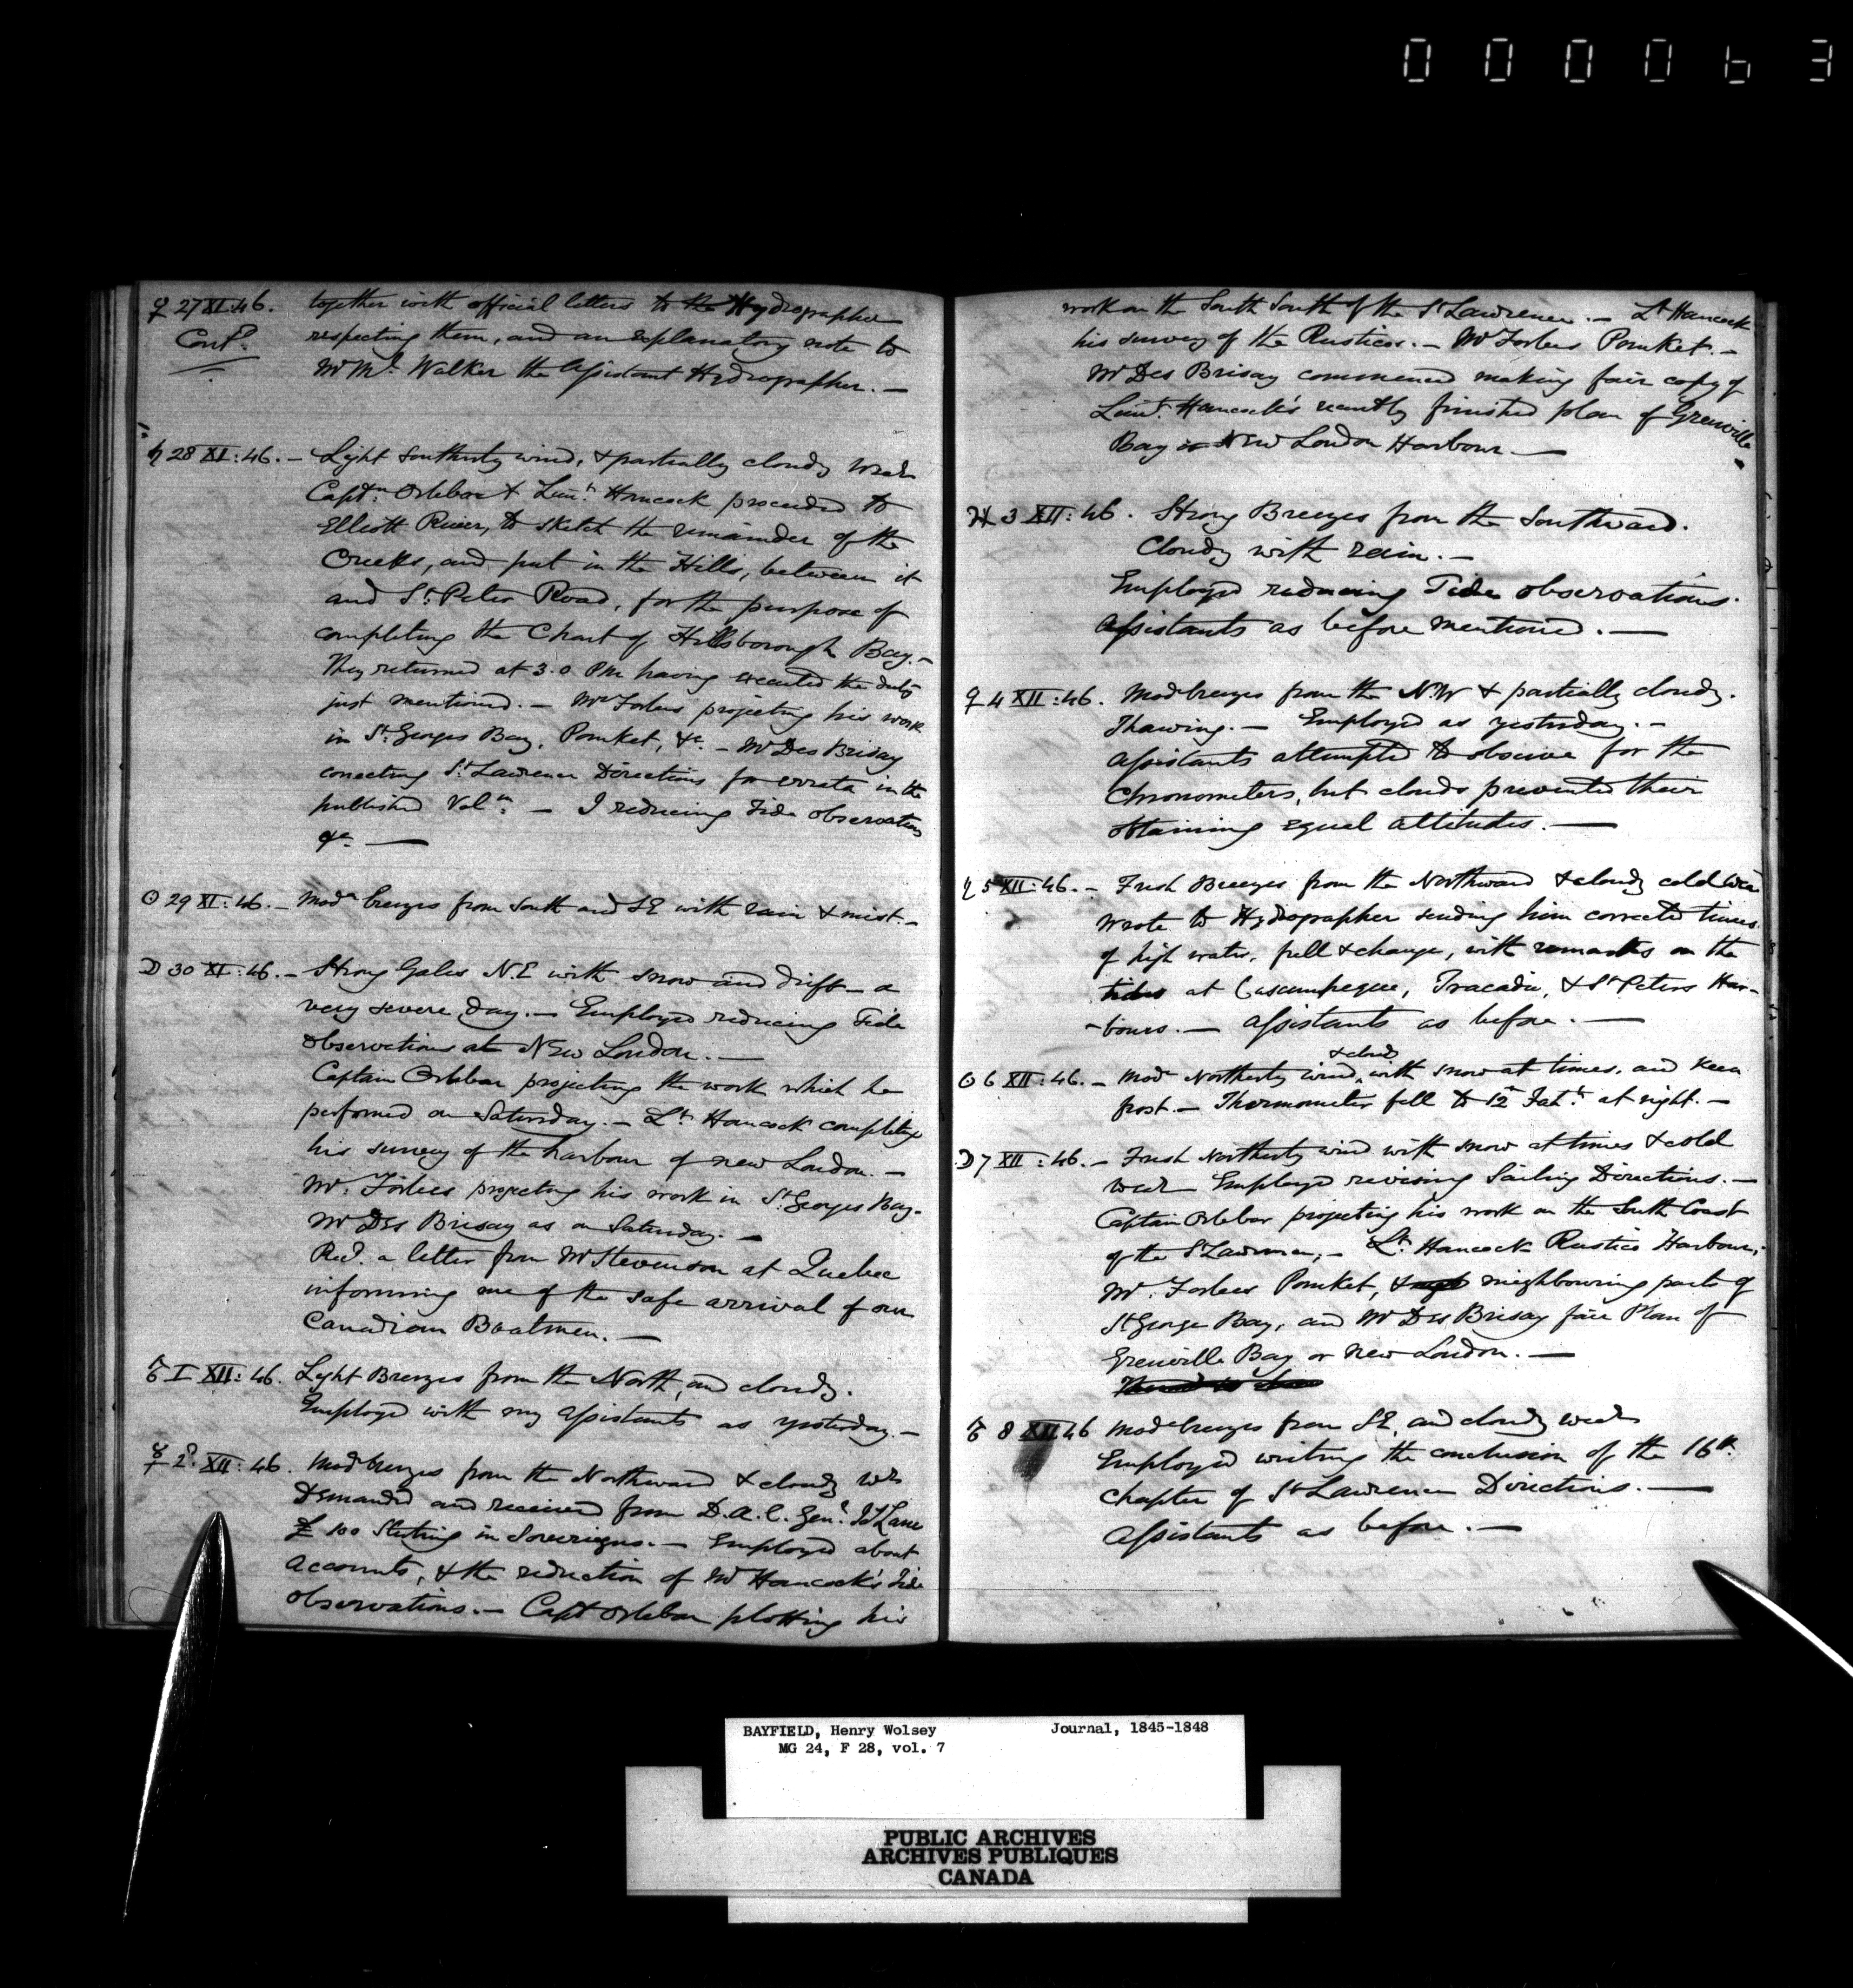 000063
♀ 27 XI:46. together with official letters to the Hydrographer
Contd. respecting them, and an explanatory note to
Mr Ml. Walker the Assistant Hydrographer. —
♄ 28 XI:46. — Light Southerly wind, & partially cloudy Wear
Captn. Orlebar & Lieut. Hancock proceeded to
Elliott River, to sketch the remainder of the
Creeks, and put in the Hills, between it
and St. Peter Road, for the purpose of
completing the Chart of Hillsborough Bay. —
They returned at 3.0 PM having executed the duty
just mentioned. — Mr Forbes projecting his work
in St. Georges Bay, Pomket, &c. — Mr Des Brisay
correcting St. Lawrence Directions for errata in the
published Volm. — I reducing Tide observations
&c. —
☉ 29 XI:46. — Modr breezes from South and SE with rain & mist. —
☽ 30 XI:46. — Strong Gales N.E with snow and drift — a
very severe day. — Employed reducing Tide
Observations at New London. —
Captain Orlebar projecting the work which he
performed on Saturday. — Lt. Hancock completing
his survey of the harbour of new London. —
Mr. Forbes projecting his work in St. Georges Bay.
Mr Des Brisay as on Saturday. —
Recd. a letter from Mr Stevenson at Quebec
informing me of the safe arrival of our
Canadian Boatmen. —
♂ I XII:46. Light Breezes from the North, and cloudy.
Employed with my Assistants as yesterday. —
☿ 2d. XII:46. Modr breezes from the Northward & cloudy Wr
Demanded and received from D.A.C. Genl. Lane
£100 Sterling in Sovereigns. — Employed about
Accounts, & the reduction of Mr Hancock's Tide
Observations. — Capt Orlebar plotting his
work on the South South of the St Lawrence. — Lt Hancock
his survey of the Rusticos. — Mr Forbes Pomket. —
Mr Des Brisay commenced making fair copy of
Lieut. Hancock's recently finished plan of Grenville
Bay or New London Harbour —
♃ 3 XII:46. Strong Breezes from the Southward.
Cloudy with rain. —
Employed reducing Tide observations.
Assistants as before mentioned. —
♀ 4 XII:46. Mod breezes from the N.W & partially cloudy.
Thawing. — Employed as yesterday. —
Assistants attempted to observe for the
Chronometers, but clouds prevented their
obtaining equal altitudes. —
♄ 5 XII:46. — Fresh Breezes from the Northward & cloudy cold Wear
Wrote to Hydrographer sending him corrected times
of high water, full & change, with remarks on the
tides at Cascumpeque, Tracadie, & St Peters Har-
-bours. — Assistants as before. —
& cloudy
☉ 6 XII:46. — Modr Northerly wind, with snow at times, and keen
frost. — Thermometer fell to 12° Faht. at night. —
☽ 7 XII:46. — Fresh Northerly wind with snow at times & cold
Wear Employed revising Sailing Directions. —
Captain Orlebar projecting his work on the South Coast
of the St Lawrence; — Lt. Hancock Rustico Harbour;
Mr. Forbes Pomket, & neighbouring parts of
St George Bay, and Mr Des Brisay fair Plan of
Grenville Bay or New London. —
♂ 8 XII 46 Modr breezes from SE, and cloudy wear
Employed writing the conclusion of the 16th.
Chapter of St Lawrence Directions. —
Assistants as before. —
BAYFIELD, Henry Wolsey Journal, 1845-1848
MG 24, F 28, vol. 7
PUBLIC ARCHIVES
ARCHIVES PUBLIQUES
CANADA